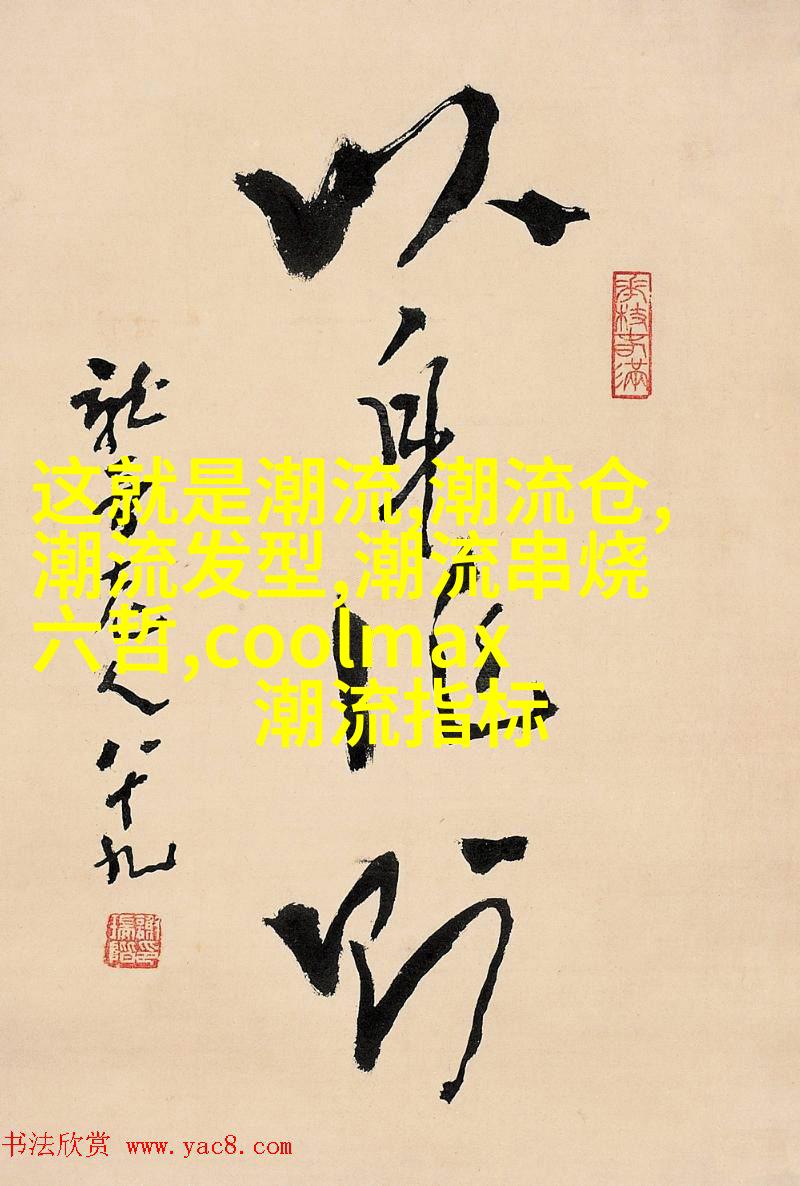 以身作则
人八十九
这就是潮流,潮流仓,
潮流发型,潮流串烧
六哲,coolmax
潮流指标
书法欣赏 www.yac8.com